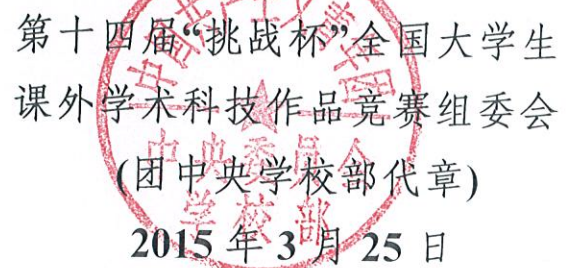 第十四届“挑战杯”全国大学生
课外学术科技作品竞赛组委会
(团中央学校部代章)
2015 年 3 月 25 日
中央委员会
学校部